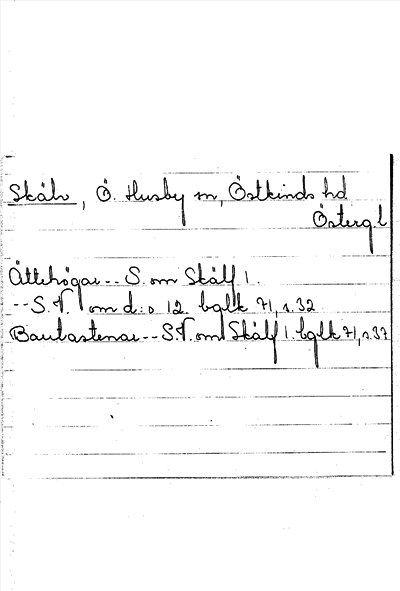 Skälv, Ö. Husby sn, Östkinds hd
Österg. l
Ättehögar -- S. om Skälf 1.
-- S.V. om d:o 12. bglk 71, s. 32
Bautastenar -- S.V. om Skälf 1. bglk 71, s. 37